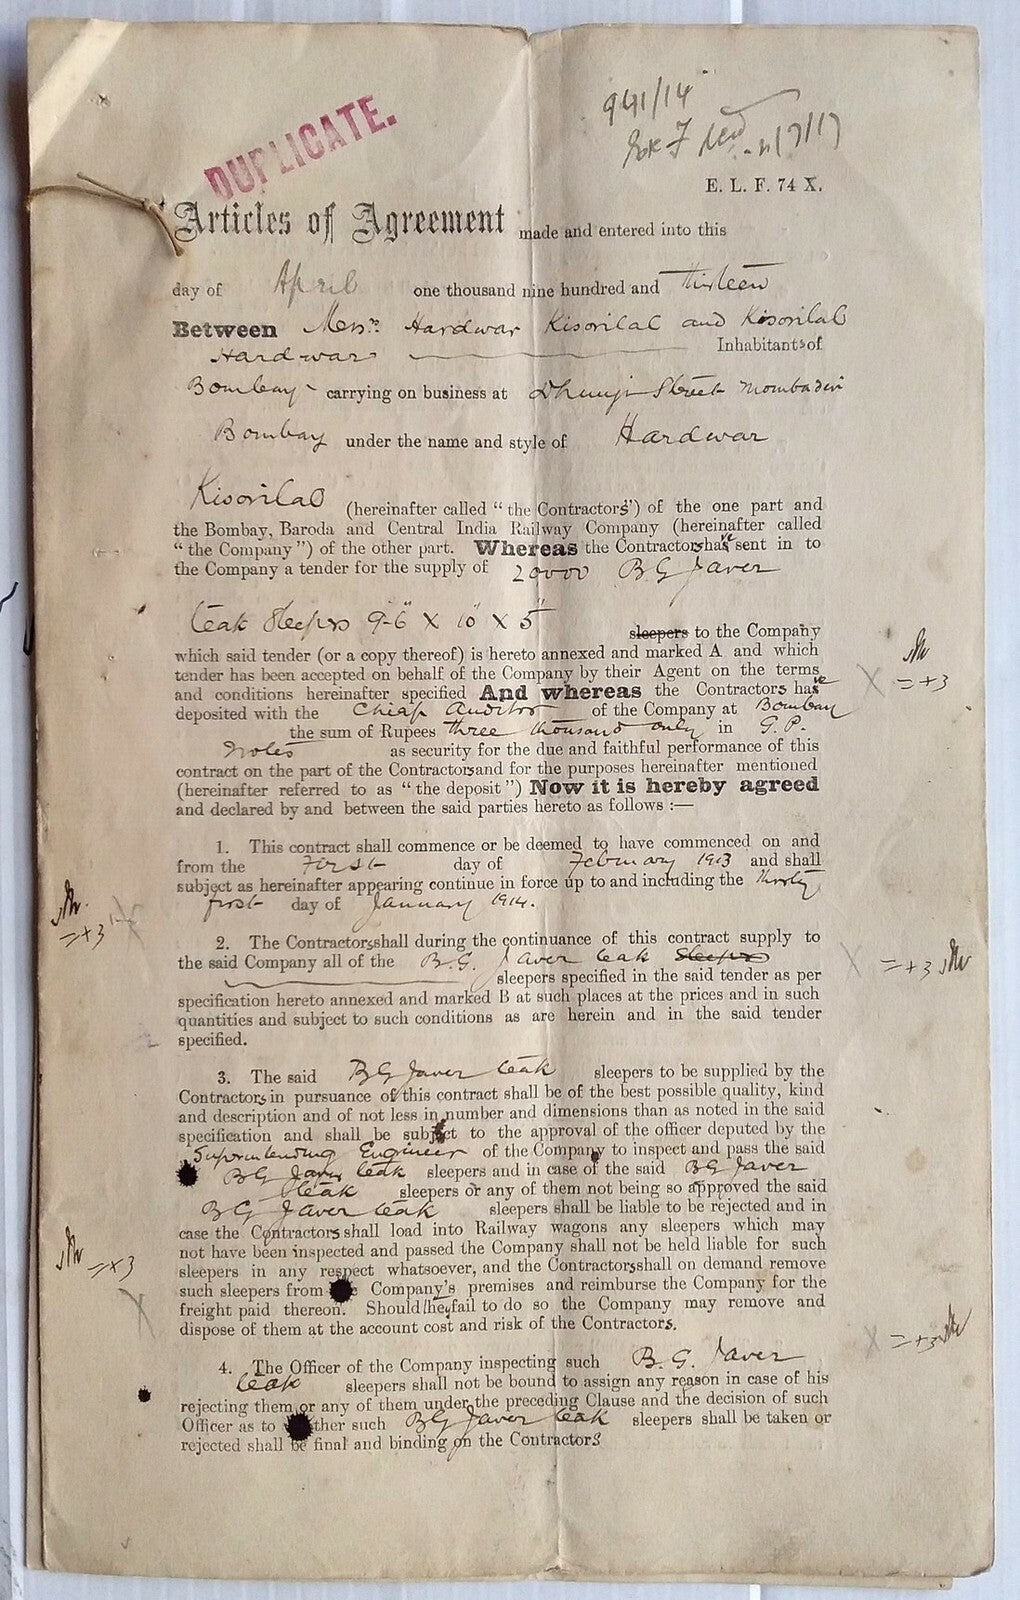 941/14
DUPLICATE.
E. L. F. 74 X.
Articles of Agreement made and entered into this
day of April one thousand nine hundred and thirteen
Between Messrs Hardwar Kisorilal and Kisorilal
Hardwar Inhabitants of
Bombay carrying on business at Dhunji Street Mombadivi
Bombay under the name and style of Hardwar
Kisorilal (hereinafter called “the Contractors”) of the one part and
the Bombay, Baroda and Central India Railway Company (hereinafter called
“the Company”) of the other part. Whereas the Contractors have sent in to
the Company a tender for the supply of 20000 B G Javer
teak Sleepers 9-6" X 10" X 5"
sleepers to the Company
which said tender (or a copy thereof) is hereto annexed and marked A and which
tender has been accepted on behalf of the Company by their Agent on the terms
and conditions hereinafter specified And whereas the Contractors have
deposited with the Chief Auditor of the Company at Bombay
the sum of Rupees three thousand only in G. P.
Notes as security for the due and faithful performance of this
contract on the part of the Contractors and for the purposes hereinafter mentioned
(hereinafter referred to as “the deposit”) Now it is hereby agreed
and declared by and between the said parties hereto as follows :—
1. This contract shall commence or be deemed to have commenced on and
from the First day of February 1913 and shall
subject as hereinafter appearing continue in force up to and including the thirty
first day of January 1914.
2. The Contractors shall during the continuance of this contract supply to
the said Company all of the B. G. Javer teak Sleepers
sleepers specified in the said tender as per
specification hereto annexed and marked B at such places at the prices and in such
quantities and subject to such conditions as are herein and in the said tender
specified.
3. The said B G Javer teak sleepers to be supplied by the
Contractors in pursuance of this contract shall be of the best possible quality, kind
and description and of not less in number and dimensions than as noted in the said
specification and shall be subject to the approval of the officer deputed by the
Superintending Engineer of the Company to inspect and pass the said
B G Javer teak sleepers and in case of the said B G Javer
teak sleepers or any of them not being so approved the said
B G Javer teak sleepers shall be liable to be rejected and in
case the Contractors shall load into Railway wagons any sleepers which may
not have been inspected and passed the Company shall not be held liable for such
sleepers in any respect whatsoever, and the Contractors shall on demand remove
such sleepers from Company's premises and reimburse the Company for the
freight paid thereon. Should they fail to do so the Company may remove and
dispose of them at the account cost and risk of the Contractors.
4. The Officer of the Company inspecting such B. G. Javer
teak sleepers shall not be bound to assign any reason in case of his
rejecting them or any of them under the preceding Clause and the decision of such
Officer as to such B G Javer teak sleepers shall be taken or
rejected shall be final and binding on the Contractors